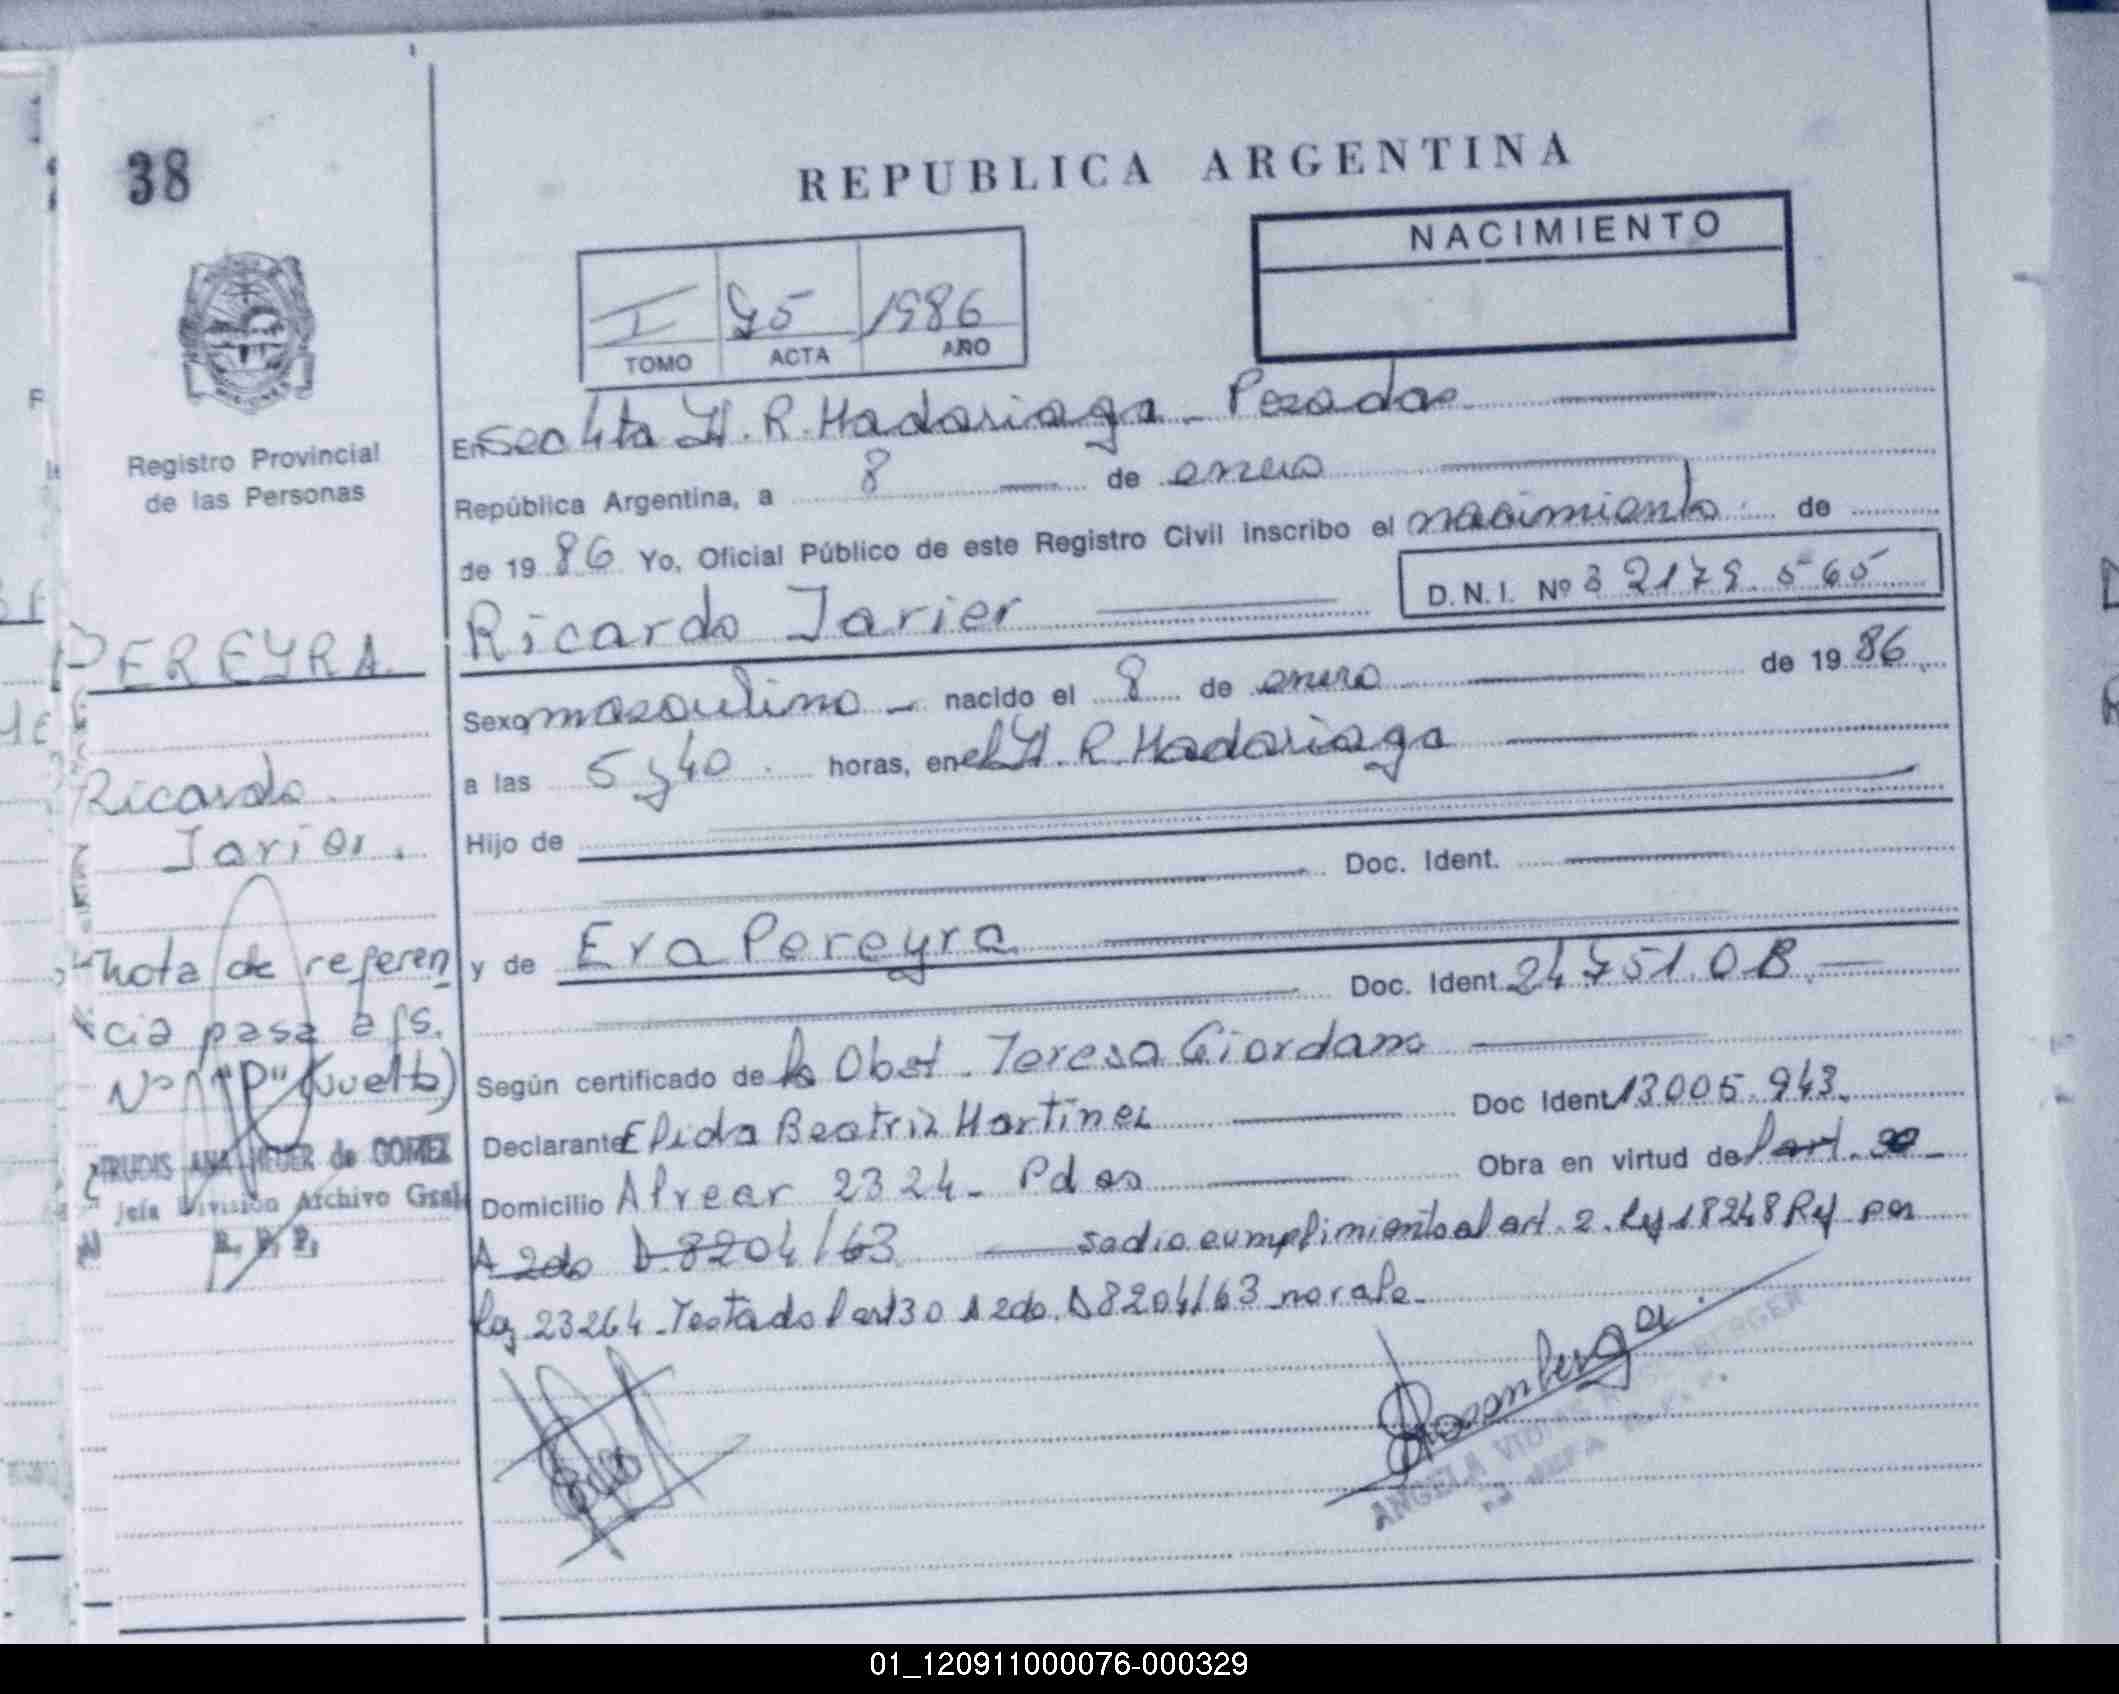 38
REPUBLICA ARGENTINA
NACIMIENTO
I 75 1986
TOMO ACTA AÑO
Registro Provincial
de las Personas
En Sec 4ta H. R. Madariaga - Posadas
República Argentina, a 8 de enero
de 1986 Yo, Oficial Público de este Registro Civil inscribo el nacimiento de
Ricardo Javier D.N.I. Nº 32179.565
PEREYRA
Ricardo
Javier.
Sexo masculino - nacido el 8 de enero de 1986
a las 5 y 40 horas, en el H. R. Madariaga
Hijo de
Doc. Ident.
y de Eva Pereyra
Doc. Ident. 247510B
Según certificado de la Obst. Teresa Giordano
Declarante Elida Beatriz Martinez Doc Ident 13005.943.
Domicilio Alvear 2324 - Pdas Obra en virtud del art. 30
A 2do D 8204/63 se dio cumplimiento al art. 2. Ley 18248 Ref por
Ley 23264 - Testado l art 30 A 2do. D 8204/63 no vale.
"Nota de referen
cia pasa a fs.
Nº "P" (vuelta)
ANA MEGER de GOMEZ
Jefa División Archivo Gral.
R. P. P.
Rosenberger
ANGELA
JEFA
01_120911000076-000329